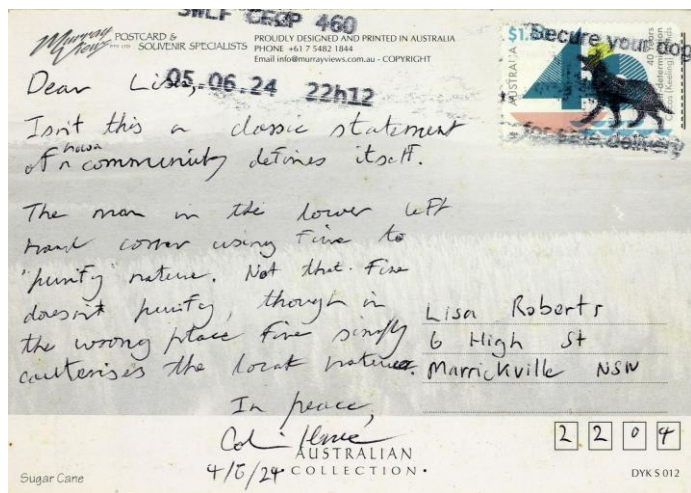 SWLF CFOP 460
Murray Views PTY LTD POSTCARD & SOUVENIR SPECIALISTS
PROUDLY DESIGNED AND PRINTED IN AUSTRALIA
PHONE +61 7 5482 1844
Email info@murrayviews.com.au - COPYRIGHT
05.06.24 22h12
Secure your dog
for safe delivery
$1.
AUSTRALIA
40 Years
Cocos (Keeling) Islands
Dear Lisa,
Isn't this a classic statement
of how a community defines itself.
The man in the lower left
hand corner using Fire to
"purify" nature. Not that Fire
doesn't purify, though in
the wrong place Fire simply
cauterises the local nature.
In peace,
4/6/24
Lisa Roberts
6 High St
Marrickville NSW
2204
AUSTRALIAN
COLLECTION
Sugar Cane
DYK S 012